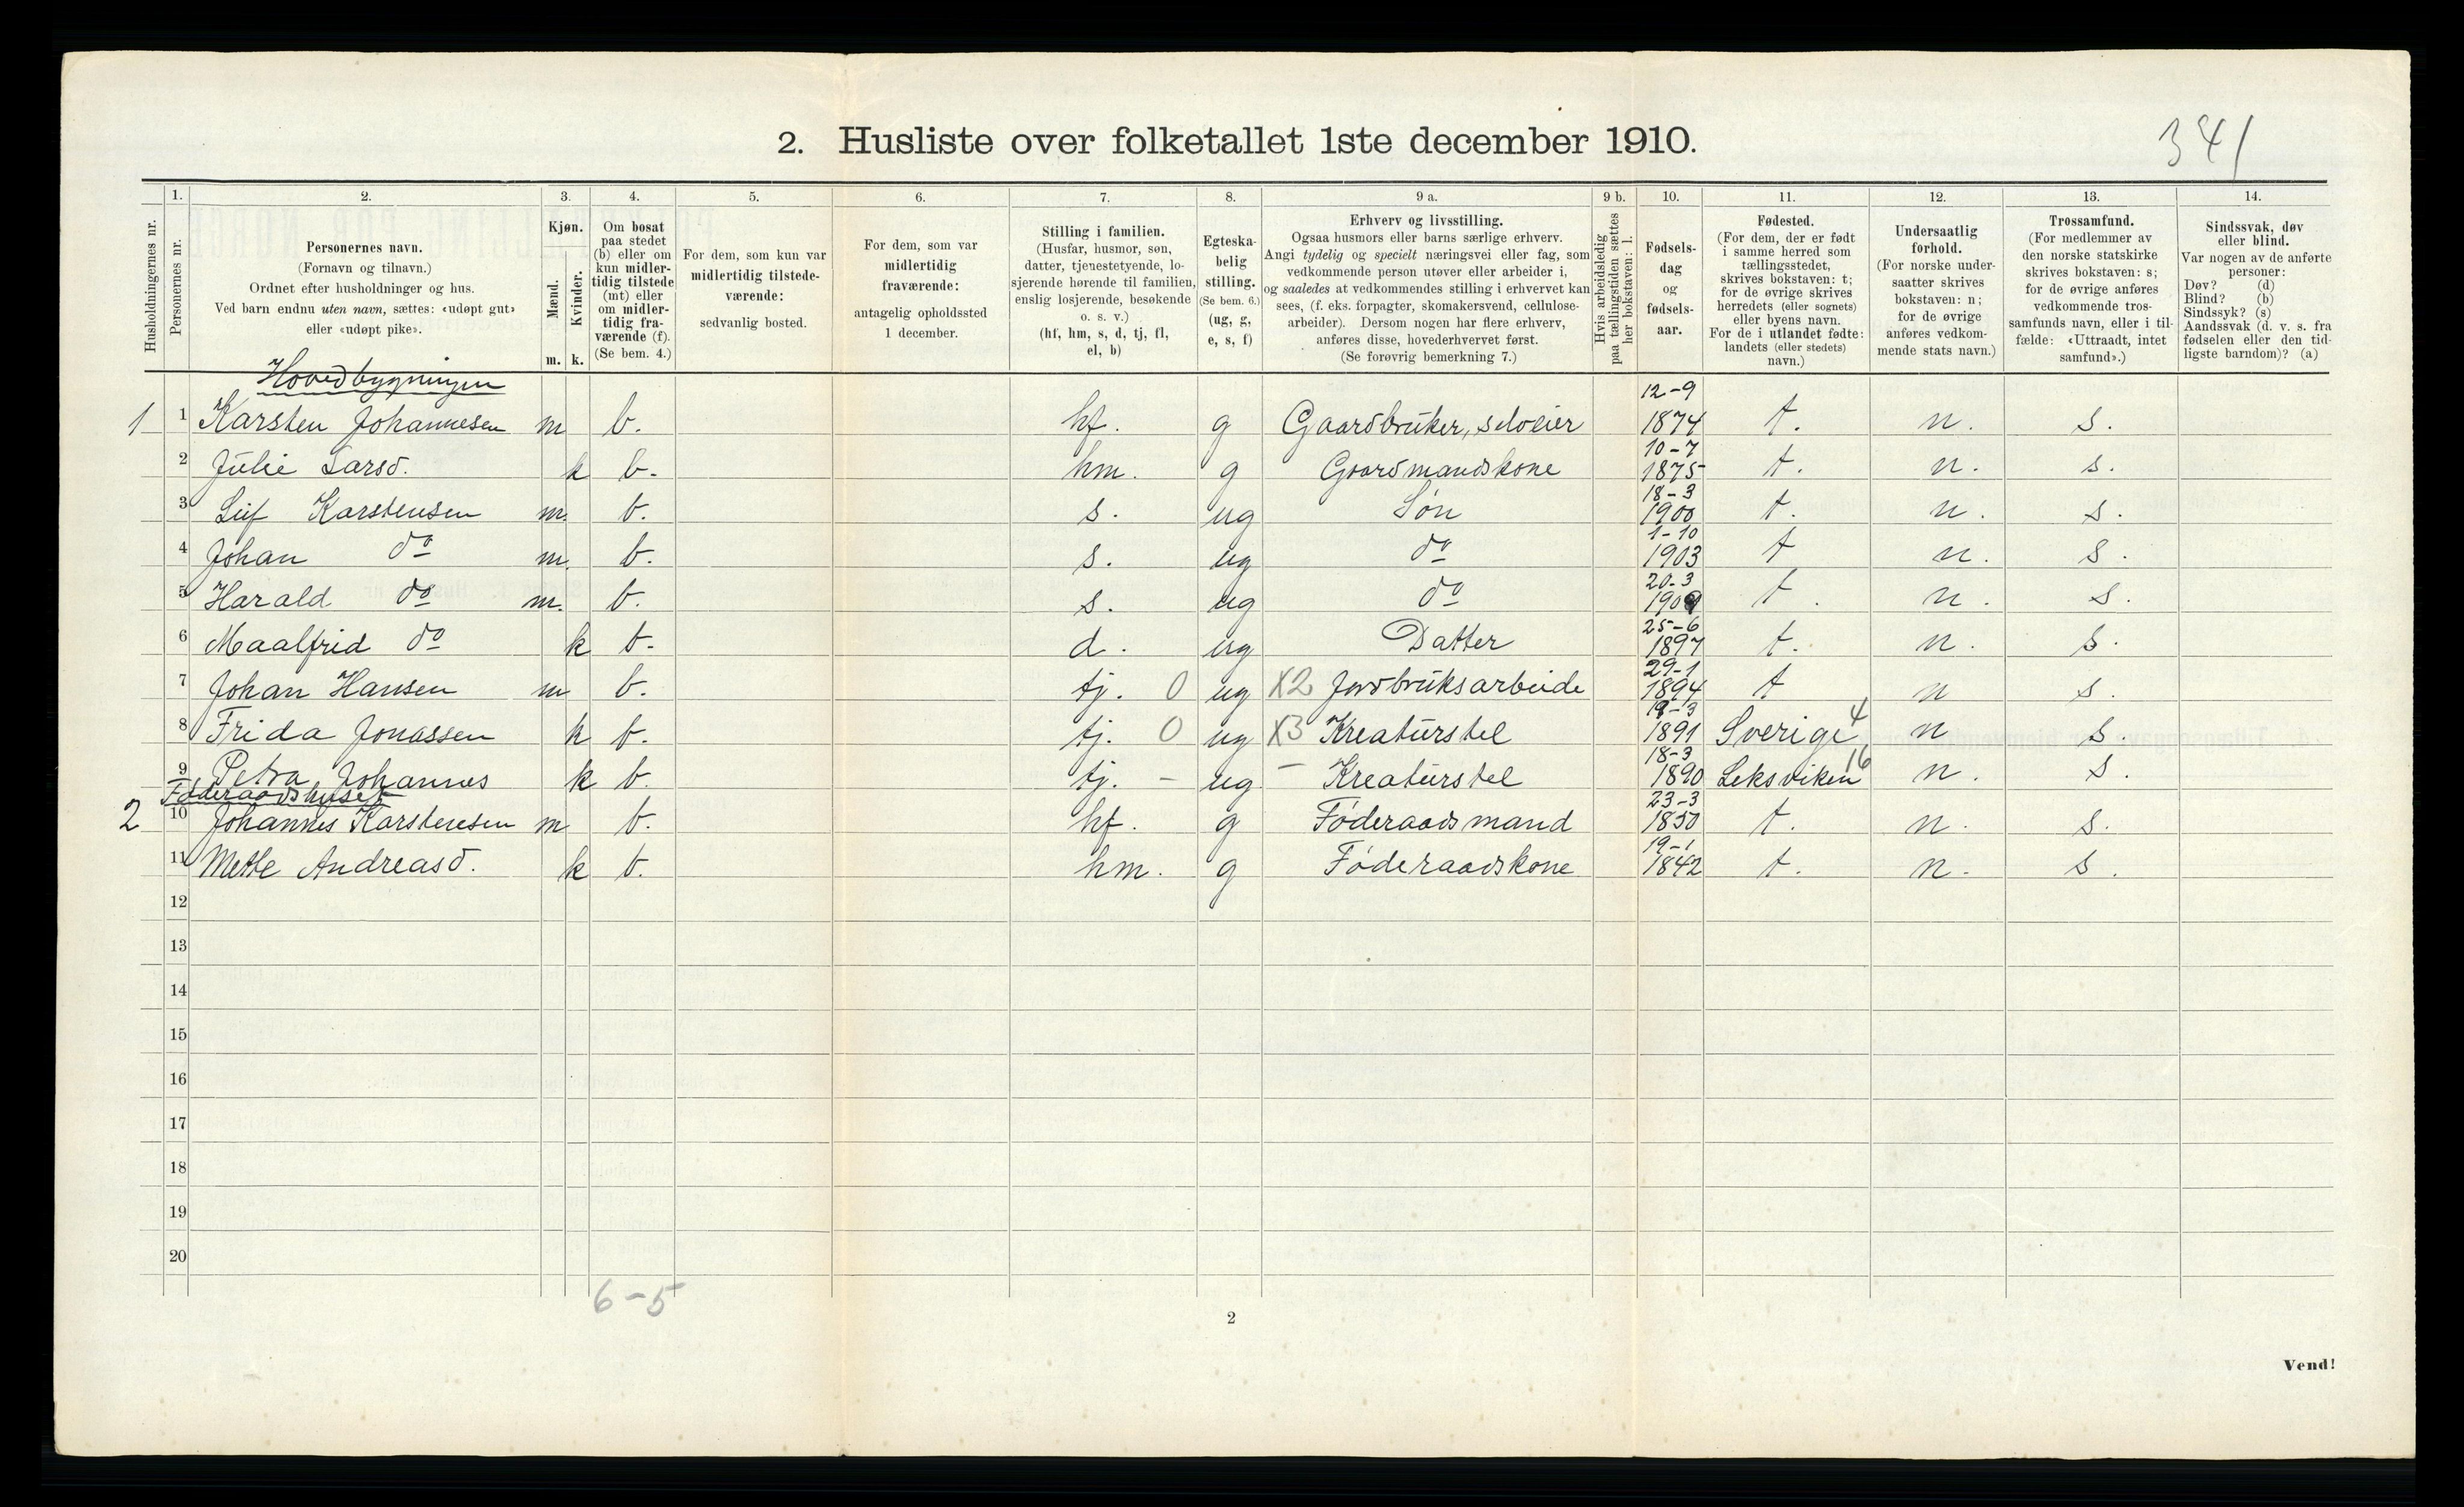 2. Husliste over folketallet 1ste december 1910.
341
1. 2. 3. 4. 5. 6. 7. 8. 9 a. 9 b. 10. 11. 12. 13. 14.
Husholdningernes nr.
Personernes nr.
Personernes navn.
(Fornavn og tilnavn.)
Ordnet efter husholdninger og hus.
Ved barn endnu uten navn, sættes: «udøpt gut»
eller «udøpt pike».
Kjøn.
Mænd.
Kvinder.
m. k.
Om bosat
paa stedet
(b) eller om
kun midler-
tidig tilstede
(mt) eller
om midler-
tidig fra-
værende (f).
(Se bem. 4.)
For dem, som kun var
midlertidig tilstede-
værende:
sedvanlig bosted.
For dem, som var
midlertidig
fraværende:
antagelig opholdssted
1 december.
Stilling i familien.
(Husfar, husmor, søn,
datter, tjenestetyende, lo-
sjerende hørende til familien,
enslig losjerende, besøkende
o. s. v.)
(hf, hm, s, d, tj, fl,
el, b)
Egteska-
belig
stilling.
(Se bem. 6.)
(ug, g,
e, s, f)
Erhverv og livsstilling.
Ogsaa husmors eller barns særlige erhverv.
Angi tydelig og specielt næringsvei eller fag, som
vedkommende person utøver eller arbeider i,
og saaledes at vedkommendes stilling i erhvervet kan
sees, (f. eks. forpagter, skomakersvend, cellulose-
arbeider). Dersom nogen har flere erhverv,
anføres disse, hovederhvervet først.
(Se forøvrig bemerkning 7.)
Hvis arbeidsledig
paa tællingstiden sættes
her bokstaven: l.
Fødsels-
dag
og
fødsels-
aar.
Fødested.
(For dem, der er født
i samme herred som
tællingsstedet,
skrives bokstaven: t;
for de øvrige skrives
herredets (eller sognets)
eller byens navn.
For de i utlandet fødte:
landets (eller stedets)
navn.)
Undersaatlig
forhold.
(For norske under-
saatter skrives
bokstaven: n;
for de øvrige
anføres vedkom-
mende stats navn.)
Trossamfund.
(For medlemmer av
den norske statskirke
skrives bokstaven: s;
for de øvrige anføres
vedkommende tros-
samfunds navn, eller i til-
fælde: «Uttraadt, intet
samfund».)
Sindssvak, døv
eller blind.
Var nogen av de anførte
personer:
Døv? (d)
Blind? (b)
Sindssyk? (s)
Aandssvak (d. v. s. fra
fødselen eller den tid-
ligste barndom)? (a)
Hovedbygningen
1 1 Karsten Johannesen m b. hf. g Gaardbruker, selveier 12-9 1874 t. n. s.
2 Julie Larsd. k b. hm. g Gaardmandskone 10-7 1875 t. n. s.
3 Leif Karstensen m. b. s. ug Søn 18-3 1900 t. n. s.
4 Johan do m. b. s. ug do 1-10 1903 t n. s.
5 Harald do m. b. s. ug do 20-3 1909 t. n. s.
6 Maalfrid do k b. d. ug Datter 25-6 1897 t. n. s.
7 Johan Hansen m b. tj. 0 ug X2 Jordbruksarbeide 29-1 1894 t n s.
8 Frida Jonassen k b. tj. 0 ug X3 Kreaturstel 3 1891 Sverige 4 n s.
9 Petra Johannes k b. tj. - ug - Kreaturstel 18-3 1890 Leksviken 16 n. s.
Føderaadshuset
2 10 Johannes Karstensen m b. hf. g Føderaadsmand 23-3 1850 t. n. s.
11 Mette Andreasd. k b. hm. g Føderaadskone 19-1 1842 t. n. s.
12
13
14
15
16
17
18
19
20
6-5
2
Vend!